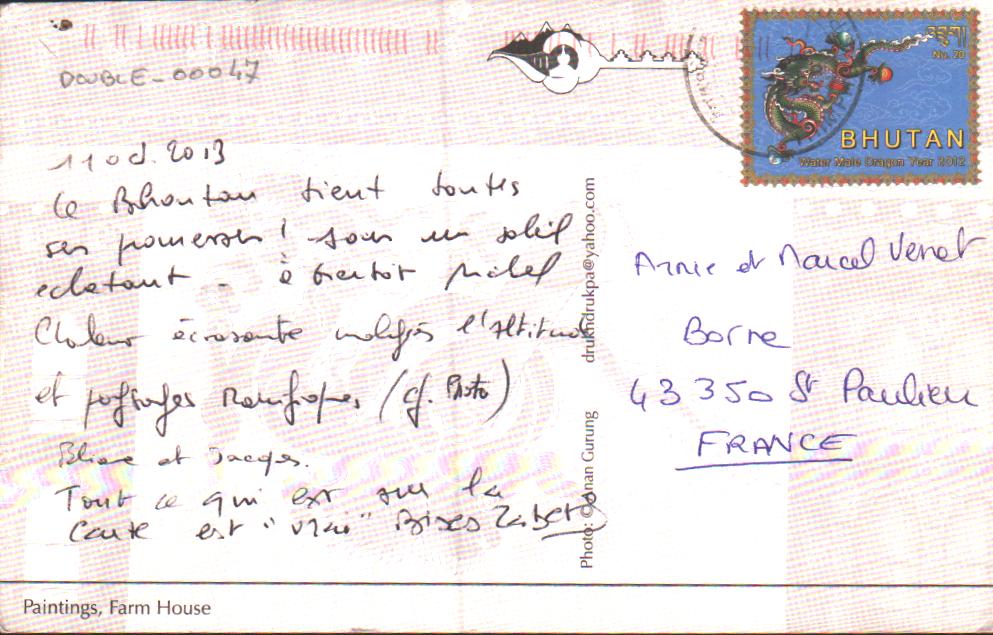 DOUBLE-00047
No. 20
BHUTAN
Water Male Dragon Year 2012
11 oct. 2013
Le Bhoutan tient toutes
ses promesses ! sous un soleil
eclatant - à bientôt Michel
Chaleur écrasante malgrés l'Altitude
et paysages magnifiques, (cf. Photo)
et Jacques.
Tout ce qui est sur la
Carte est "vrai" Bises
Photo: Gurung drukndrukpa@yahoo.com
Annie et Marcel Venet
Borne
43350 St Paulien
FRANCE
Paintings, Farm House